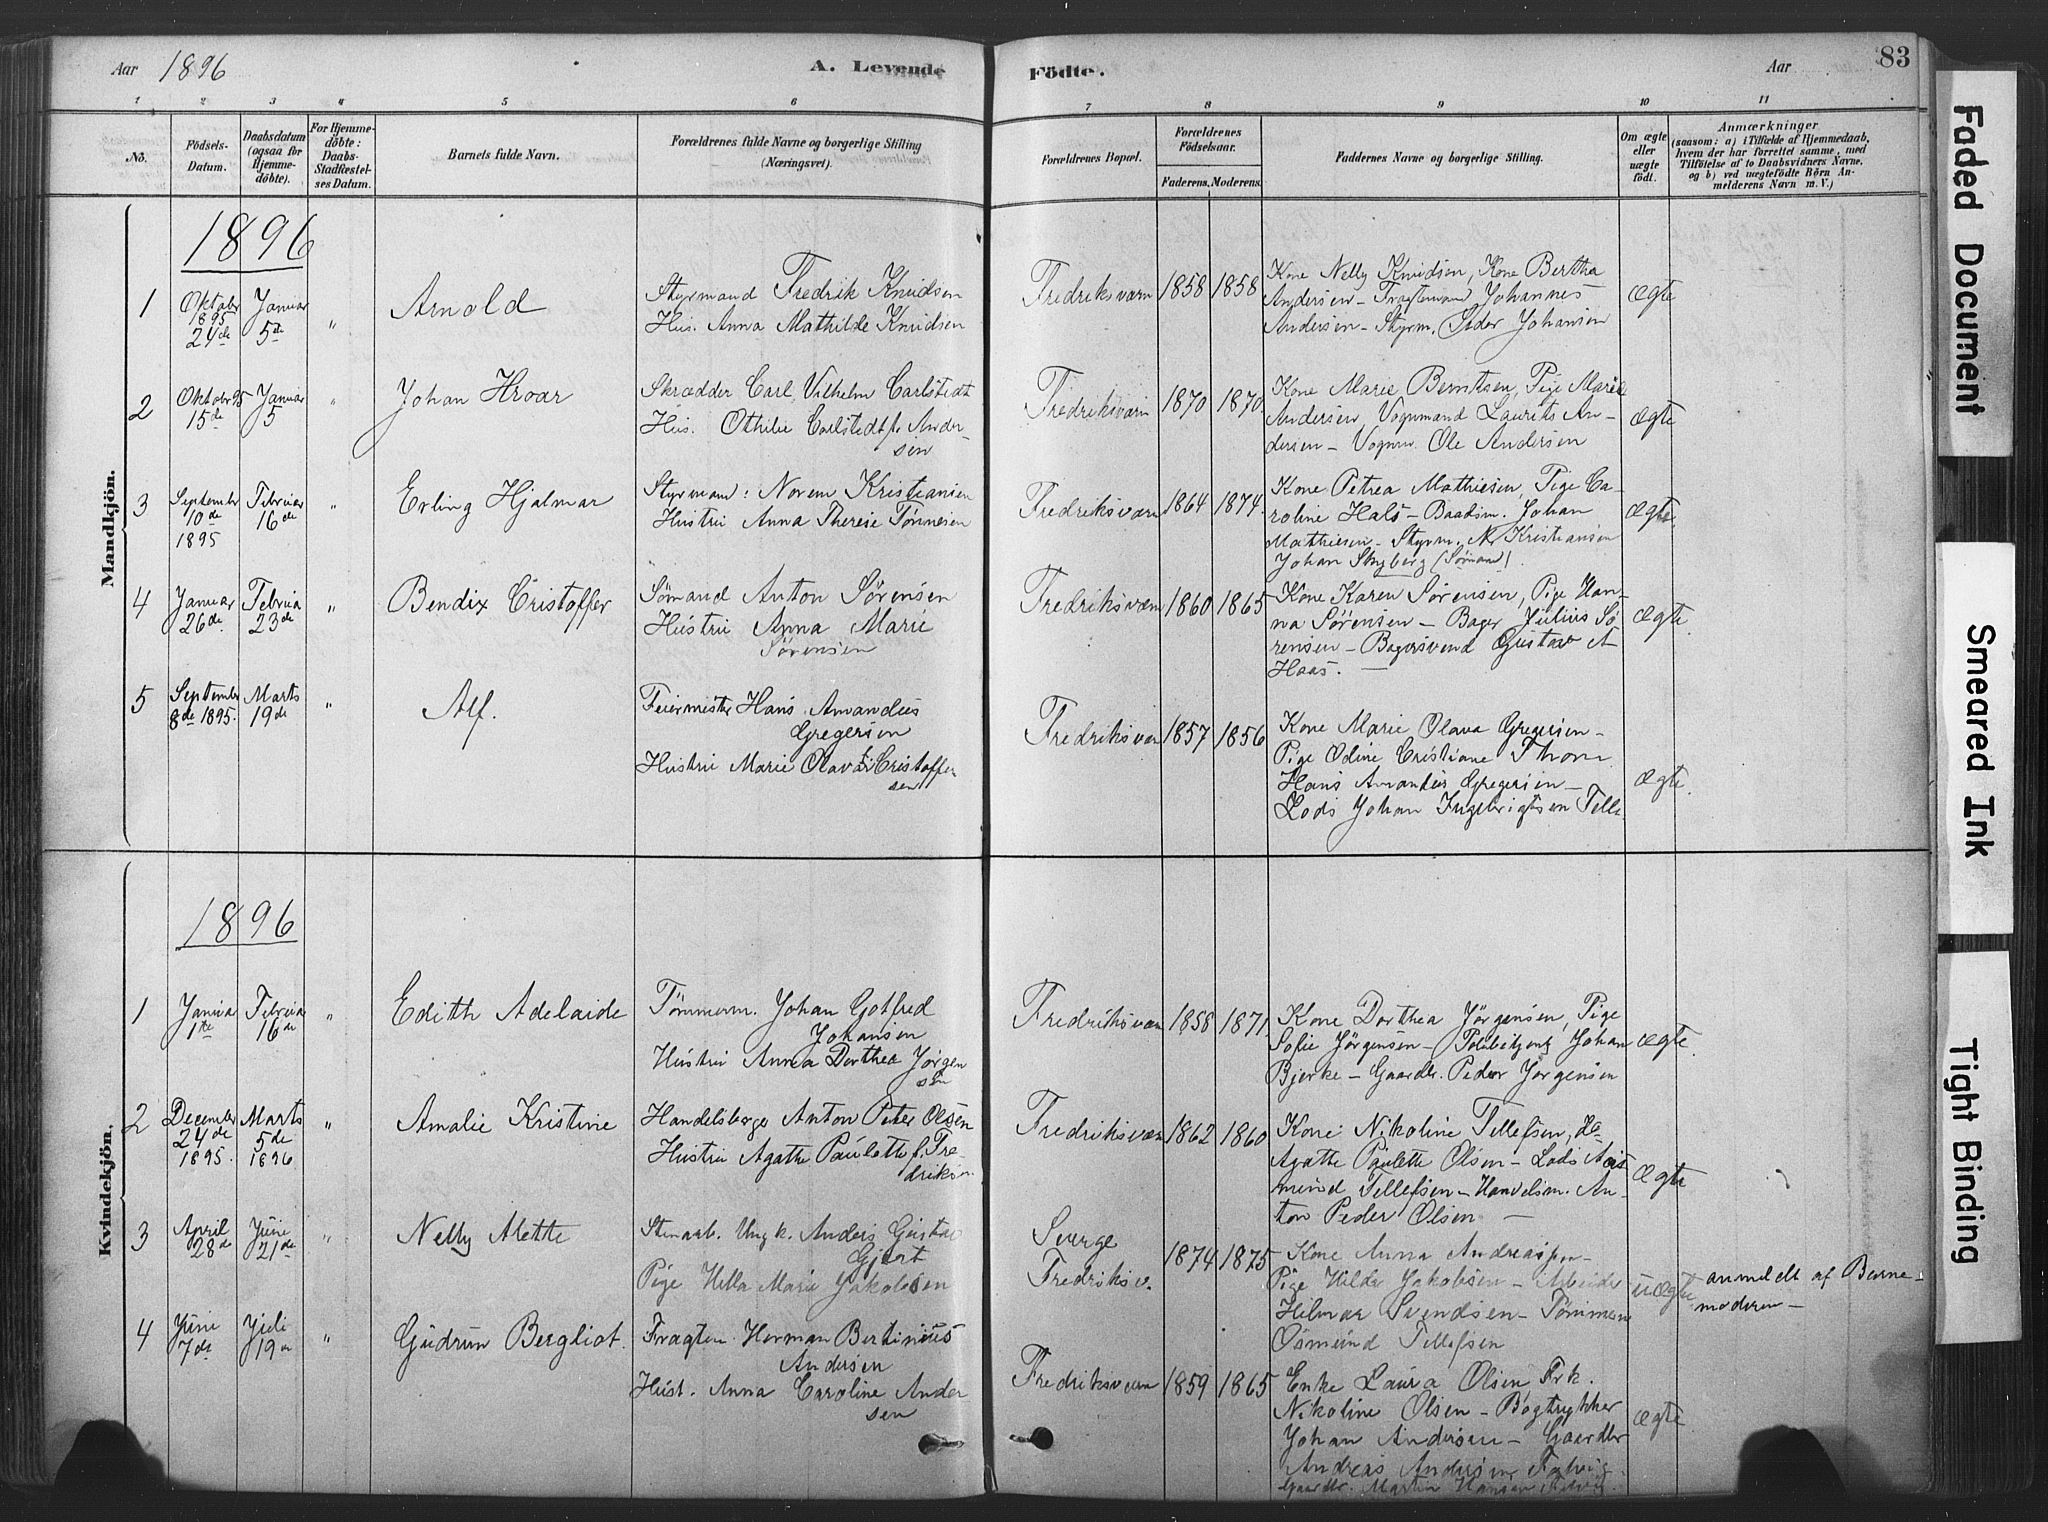 Aar 1896
A. Levende
Födte.
Aar
83
1 2 3 4 5 6 7 8 9 10 11
No.
Födsels-
Datum.
Daabsdatum
(ogsaa for
Hjemme-
döbte).
For Hjemme-
döbte:
Daabs-
Stadfæstel-
ses Datum.
Barnets fulde Navn.
Forældrenes fulde Navne og borgerlige Stilling
(Næringsvei).
Forældrenes Bopæl.
Forældrenes
Födselsaar.
Faderens. Moderens.
Faddernes Navne og borgerlige Stilling.
Om ægte
eller
uægte
födt.
Anmærkninger
(saasom: a) i Tilfælde af Hjemmedaab,
hvem der har forrettet samme, med
Tilföielse af to Daabsvidners Navne,
og b) ved uægtefödte Börn An-
melderens Navn m. V.)
Mandkjön.
1896
1
Oktobr
1895
24de
Januar
5te
"
Arnold
Styrmand Fredrik Knudsen
Hus. Anna Mathilde Knudsen
Fredriksværn
1858
1858
Kone Nelly Knudsen, Kone Bertha
Andersen - Fragtemand Johannes
Andersen - Styrm. Johansen
Ægte
2
Oktobr 95
15de
Januar
5
"
Johan Hroar
Skrædder Carl Vilhelm Carlstedt
Hus. Othilie Carlstedt f. Ander-
sen
Fredriksværn
1870
1870
Kone Marie Berntsen, Pige Marie
Andersen Vognmand Laurits An-
dersen - Vognm. Ole Andersen
Ægte
3
September
10de
1895
Februar
16de
"
Erling Hjalmar
Styrmand: Norem Kristiansen
Hustru Anna Therese Tønnesen
Fredriksværn
1864
1874.
Kone Petrea Mathiesen, Pige Ca-
roline Hals - Baadsm. Johan
Mathiesen - Styrm. N. Kristiansen
Johan Skyberg (Sømand).
Ægte
4
Januar
26de
Februa
23de
"
Bendix Cristoffer
Sømand Anton Sørensen
Hustru Anna Marie
Sørensen
Fredriksværn
1860
1865
Kone Karen Sørensen, Pige Han-
na Sørensen - Bager Julius Sø-
rensen - Bagersvend Gustav A
Haas. -
Ægte.
5
September
8de 1895.
Marts
19de
"
Alf.
Feiermester Hans Amandus
Gregersen
Hustru Marie Olava f. Cristoffer
sen
Fredriksværn
1857
1856
Kone Marie Olava Gregersen -
Pige Odine Cristiane Thom
Hans Amandus Gregersen -
Lods Johan Ingebrigtsen Telle
Ægte.
Kvindekjön.
1896
1
Janua
1te
Februa
16de
"
Edith Adelaide
Tömmerm. Johan Gotfred
Johansen
Hustru Anna Dorthea Jørgen
sen
Fredriksværn
1858
1871
Kone Dorthea Jørgensen, Pige
Sofie Jørgensen - Politibetjent Johan
Bjerke - Gaardbr. Peder Jørgensen
Ægte.
2
December
24de
1895.
Marts
5de
1896
"
Amalie Kristine
Handelsborger Anton Peter Olsen
Hustru Agathe Paulette f. Fre-
driksn
Fredriksværn
1862
1860
Kone Nikoline Tellefsen,
Agathe Paulette Olsen - Lods Aas
mund Tellefsen - Handelsm. An-
ton Peder Olsen -
Ægte
3
April
28de
Juni
21de
"
Nelly Alette
Stenarb. Ungk. Anders Gustav
Gjert
Pige Hella Marie Jakobsen
Sverge
Fredriksv.
1874
1875
Kone Anna Andreassen -
Pige Hilda Jakobsen - Arbeider
Hilmar Svendsen - Tömmerm
Osmund Tellefsen
Uægte
anmeldt af Barne-
moderen -
4
Juni
7de
Juli
19de
"
Gudrun Bergliot.
Fragtem. Herman Bertinius
Andersen
Hust. Anna Caroline Ander
sen
Fredriksværn
1859
1865
Enke Laura Olsen Frk.
Nikoline Olsen - Bogtrykker
Johan Andersen - Gaardbr
Andreas Andersen
Gaardbr. Martin Hansen
Ægte
Faded Document
Smeared Ink
Tight Binding